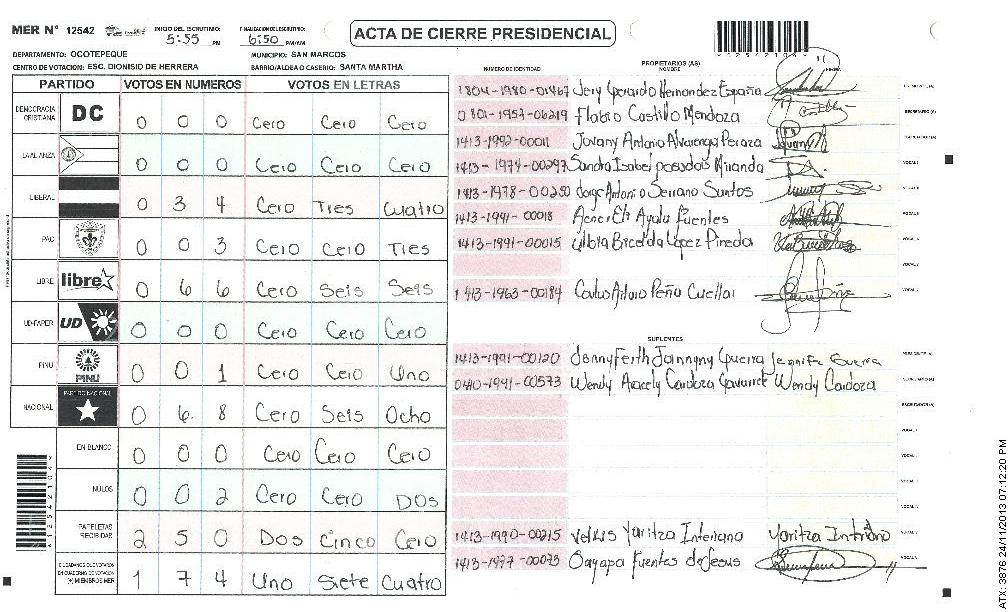 MER N° 12542
INICIO DEL ESCRUTINIO: 5:55 PM
FINALIZACION DEL ESCRUTINIO: 6:50 PM/AM
ACTA DE CIERRE PRESIDENCIAL
DEPARTAMENTO: OCOTEPEQUE
MUNICIPIO: SAN MARCOS
CENTRO DE VOTACION: ESC. DIONISIO DE HERRERA
BARRIO/ALDEA O CASERIO: SANTA MARTHA
PARTIDO VOTOS EN NUMEROS VOTOS EN LETRAS
DEMOCRACIA CRISTIANA DC 0 0 0 Cero Cero Cero
LA ALIANZA 0 0 0 Cero Cero Cero
LIBERAL 0 3 4 Cero Tres Cuatro
PAC 0 0 3 Cero Cero Tres
LIBRE libre 0 6 6 Cero Seis Seis
UD-FAPER UD 0 0 0 Cero Cero Cero
PINU PINU 0 0 1 Cero Cero Uno
NACIONAL PARTIDO NACIONAL 0 6 8 Cero Seis Ocho
EN BLANCO 0 0 0 Cero Cero Cero
NULOS 0 0 2 Cero Cero DOS
PAPELETAS RECIBIDAS 2 5 0 Dos Cinco Cero
CIUDADANOS QUE VOTARON EN CUADERNO DE VOTACION (+) MIEMBROS MER 1 7 4 Uno Siete Cuatro
PROPIETARIOS (AS)
NUMERO DE IDENTIDAD NOMBRE FIRMA
1804-1980-01467 Jery Gerardo Hernandez España
0801-1957-06219 Flabio Castillo Mendoza
1413-1992-00011 Jovany Antonio Alvarenga Peraza
1413-1974-00297 Sandra Isabel posadas Miranda
1413-1978-00250 Jorge Antonio Serrano Santos
1413-1991-00018 Ayala Fuentes
1413-1991-00015 Lopez Pineda
1413-1963-00184 Carlos Arturo Peña Cuellar
SUPLENTES
1413-1991-00120 Guerra Jennifer Guerra
Wendy Aracely Cardoza Wendy Cardoza
1413-1990-00215 Yaritza Interiano Yaritza Interiano
1413-1977-00073 Fuentes de Jesus
ATX: 3876 24/11/2013 07:12:20 PM